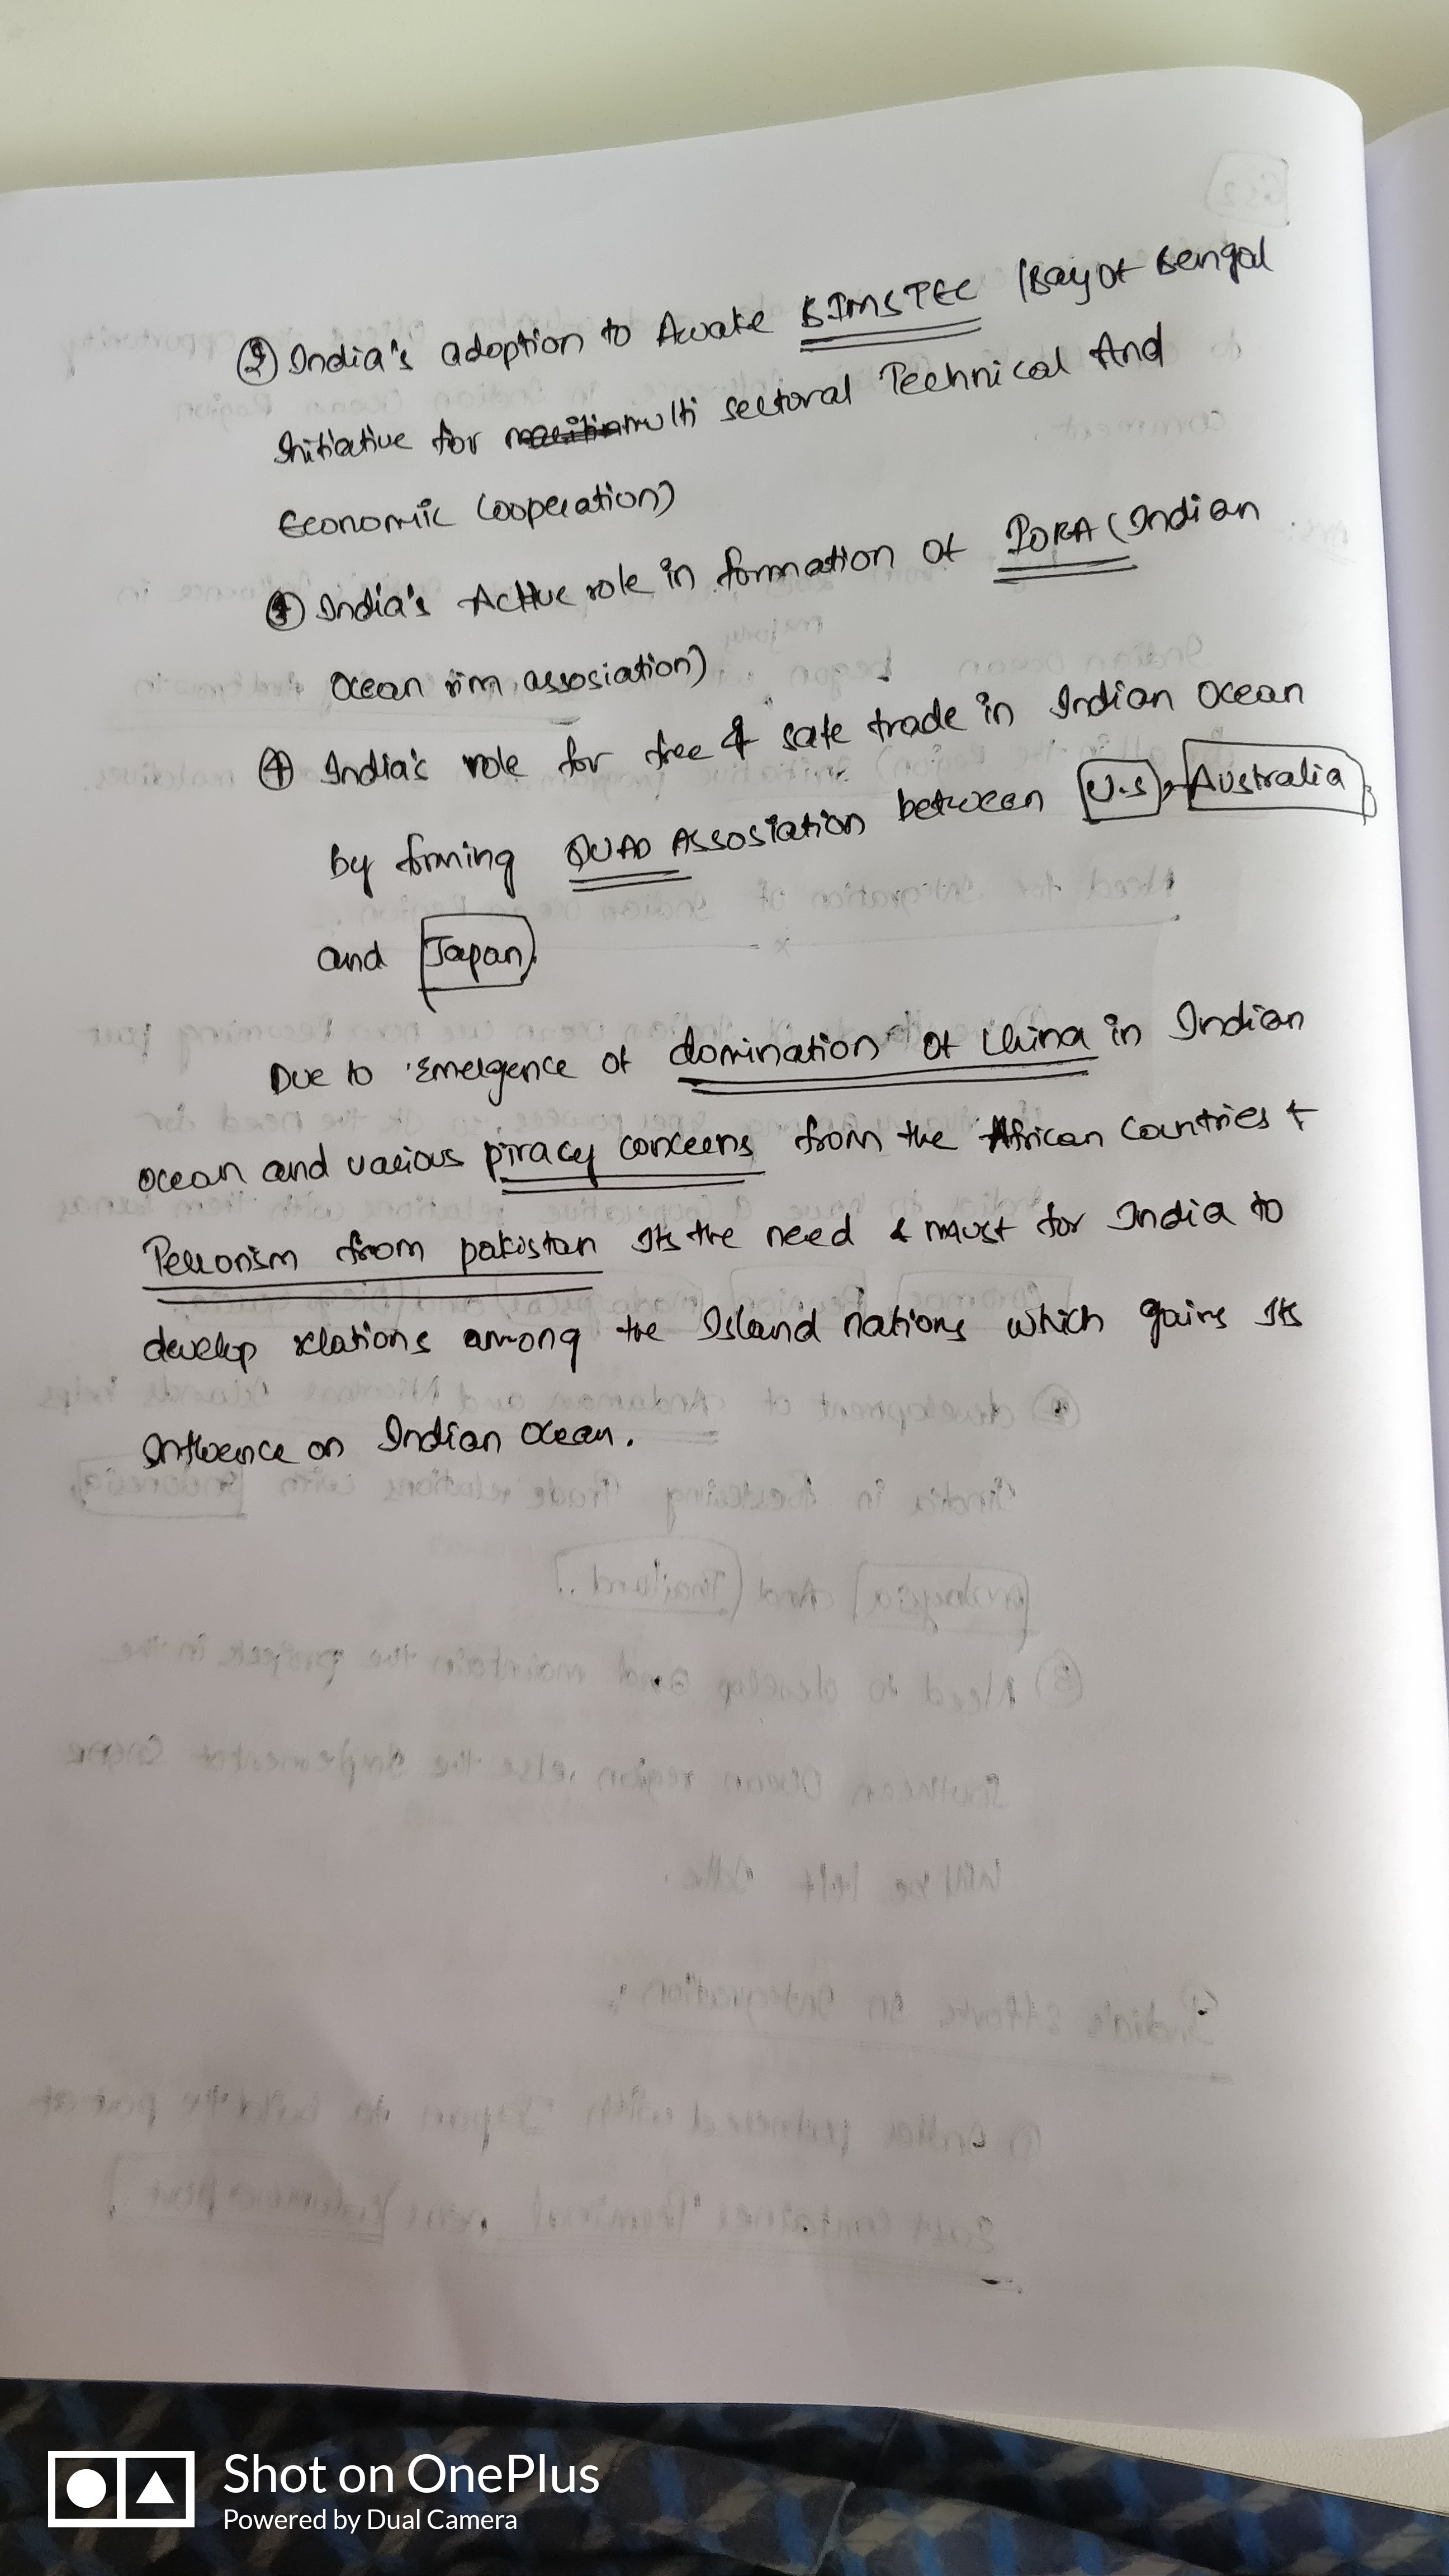 ② India's adoption to Awake BIMSTEC (Bay of Bengal
Initiative for multi sectoral Technical And
Economic Cooperation)
③ India's Active role in formation of IORA (Indian
Ocean rim assosiation)
④ India's role for free & safe trade in Indian Ocean
By forming QUAD Assosiation between U.S, Australia,
and Japan.
Due to Emergence of domination of China in Indian
Ocean and various piracy concerns from the African Countries &
Terrorism from pakistan Its the need & must for India to
develop relations among the Island nations which gains Its
Influence on Indian Ocean.
Shot on OnePlus
Powered by Dual Camera